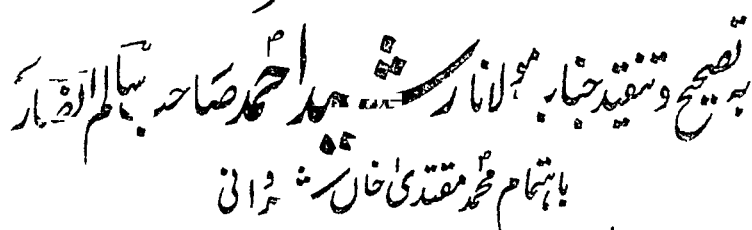 بہ تصحیح و تنقید جناب مولانا رشید احمد صاحب سالم انصاری
باہتمام محمد مقتدیٰ خاں شروانی